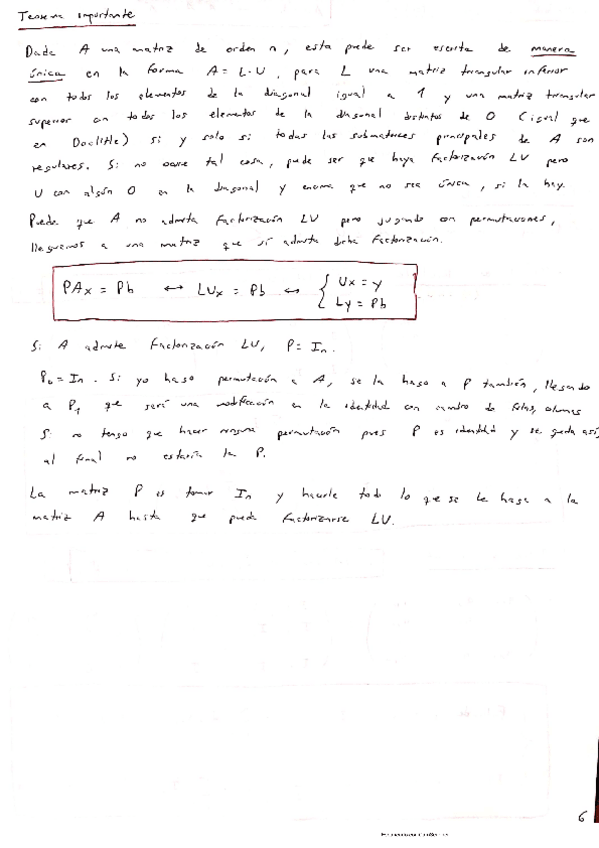 Teorema importante
Dada A una matriz de orden n, esta puede ser escrita de manera
única en la forma A = L·U, para L una matriz triangular inferior
con todos los elementos de la diagonal igual a 1 y una matriz triangular
superior con todos los elementos de la diagonal distintos de 0 (igual que
en Doolitle) si y solo si todas las submatrices principales de A son
regulares. Si no ocurre tal cosa, puede ser que haya factorización LU pero
U con algún 0 en la diagonal y encima que no sea única, si la hay.
Puede que A no admita factorización LU pero jugando con permutaciones,
lleguemos a una matriz que sí admita dicha factorización.
PAx = Pb ↔ LUx = Pb ↔ { Ux = y
Ly = Pb
Si A admite factorización LU, P = In.
P0 = In. Si yo hago permutación a A, se la hago a P también, llegando
a P1 que será una modificación en la identidad con cambio de filas,
Si no tengo que hacer ninguna permutación pues P es identidad y se queda así,
al final no estaría la P.
La matriz P es tomar In y hacerle todo lo que se le haga a la
matriz A hasta que pueda factorizarse LU.
6